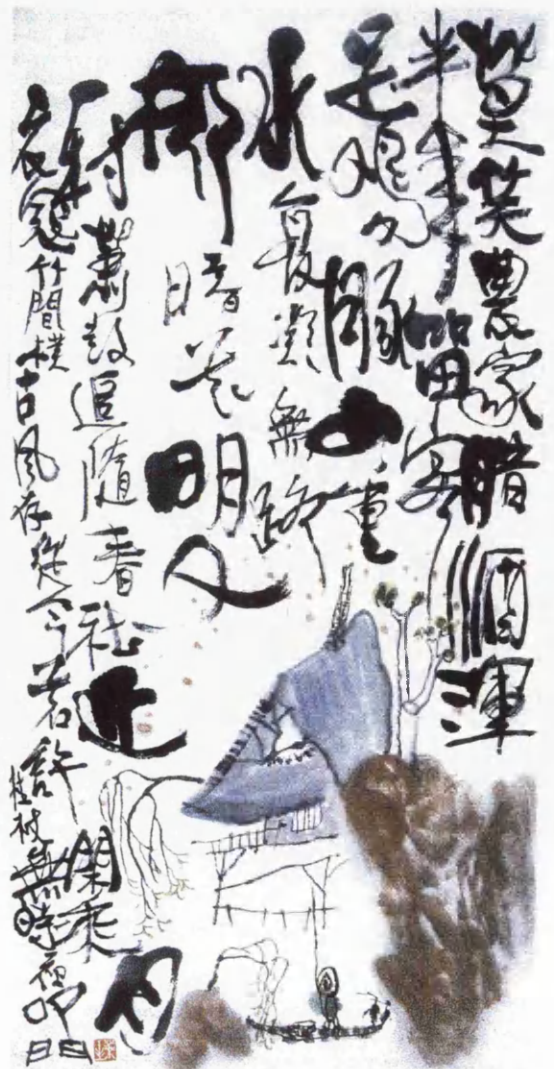 莫笑農家腊酒渾
丰年留客
足鸡豚山重
水复疑無路
柳暗花明又
一村簫鼓追隨春社近
衣冠簡樸古風存從今若許
閑乘月
拄杖無時夜叩門